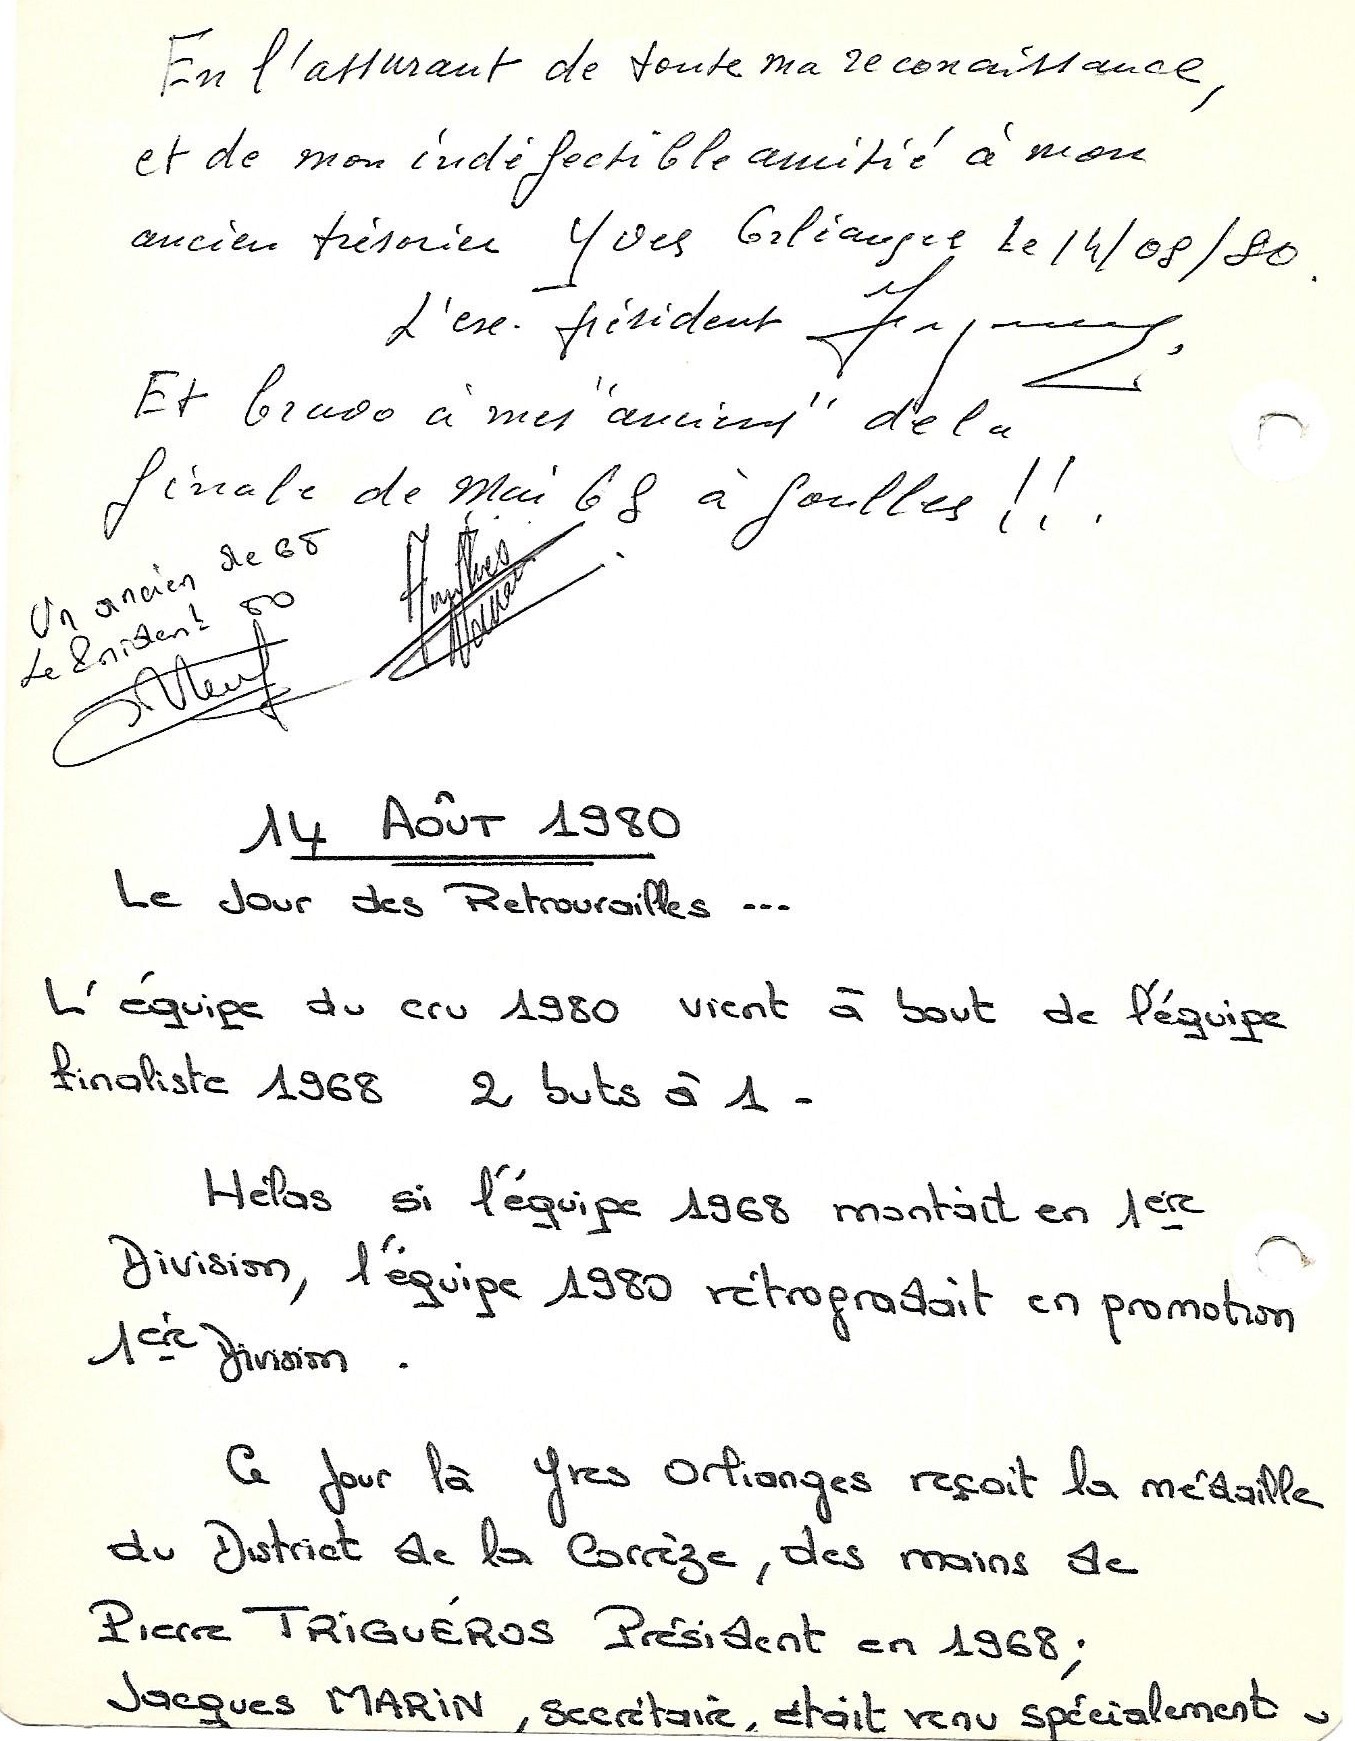 En l'assurant de toute ma reconaissance,
et de mon indéfectible amitié à mon
ancien trésorier Yves Orlianges le 14/08/80.
L'ex. président
Et bravo à mes "anciens" de la
finale de Mai 68 à Goulles !!.
Un ancien de 68
Le Président 80
14 AOÛT 1980
Le Jour des Retrouvailles ...
L'équipe du cru 1980 vient à bout de l'équipe
finaliste 1968 2 buts à 1 -
Hélas si l'équipe 1968 montait en 1ère
Division, l'équipe 1980 rétrogradait en promotion
1ère Division .
Ce jour là Yves Orlianges reçoit la médaille
du District de la Corrèze, des mains de
Pierre TRIGUÉROS Président en 1968;
Jacques MARIN, secrétaire, était venu spécialement